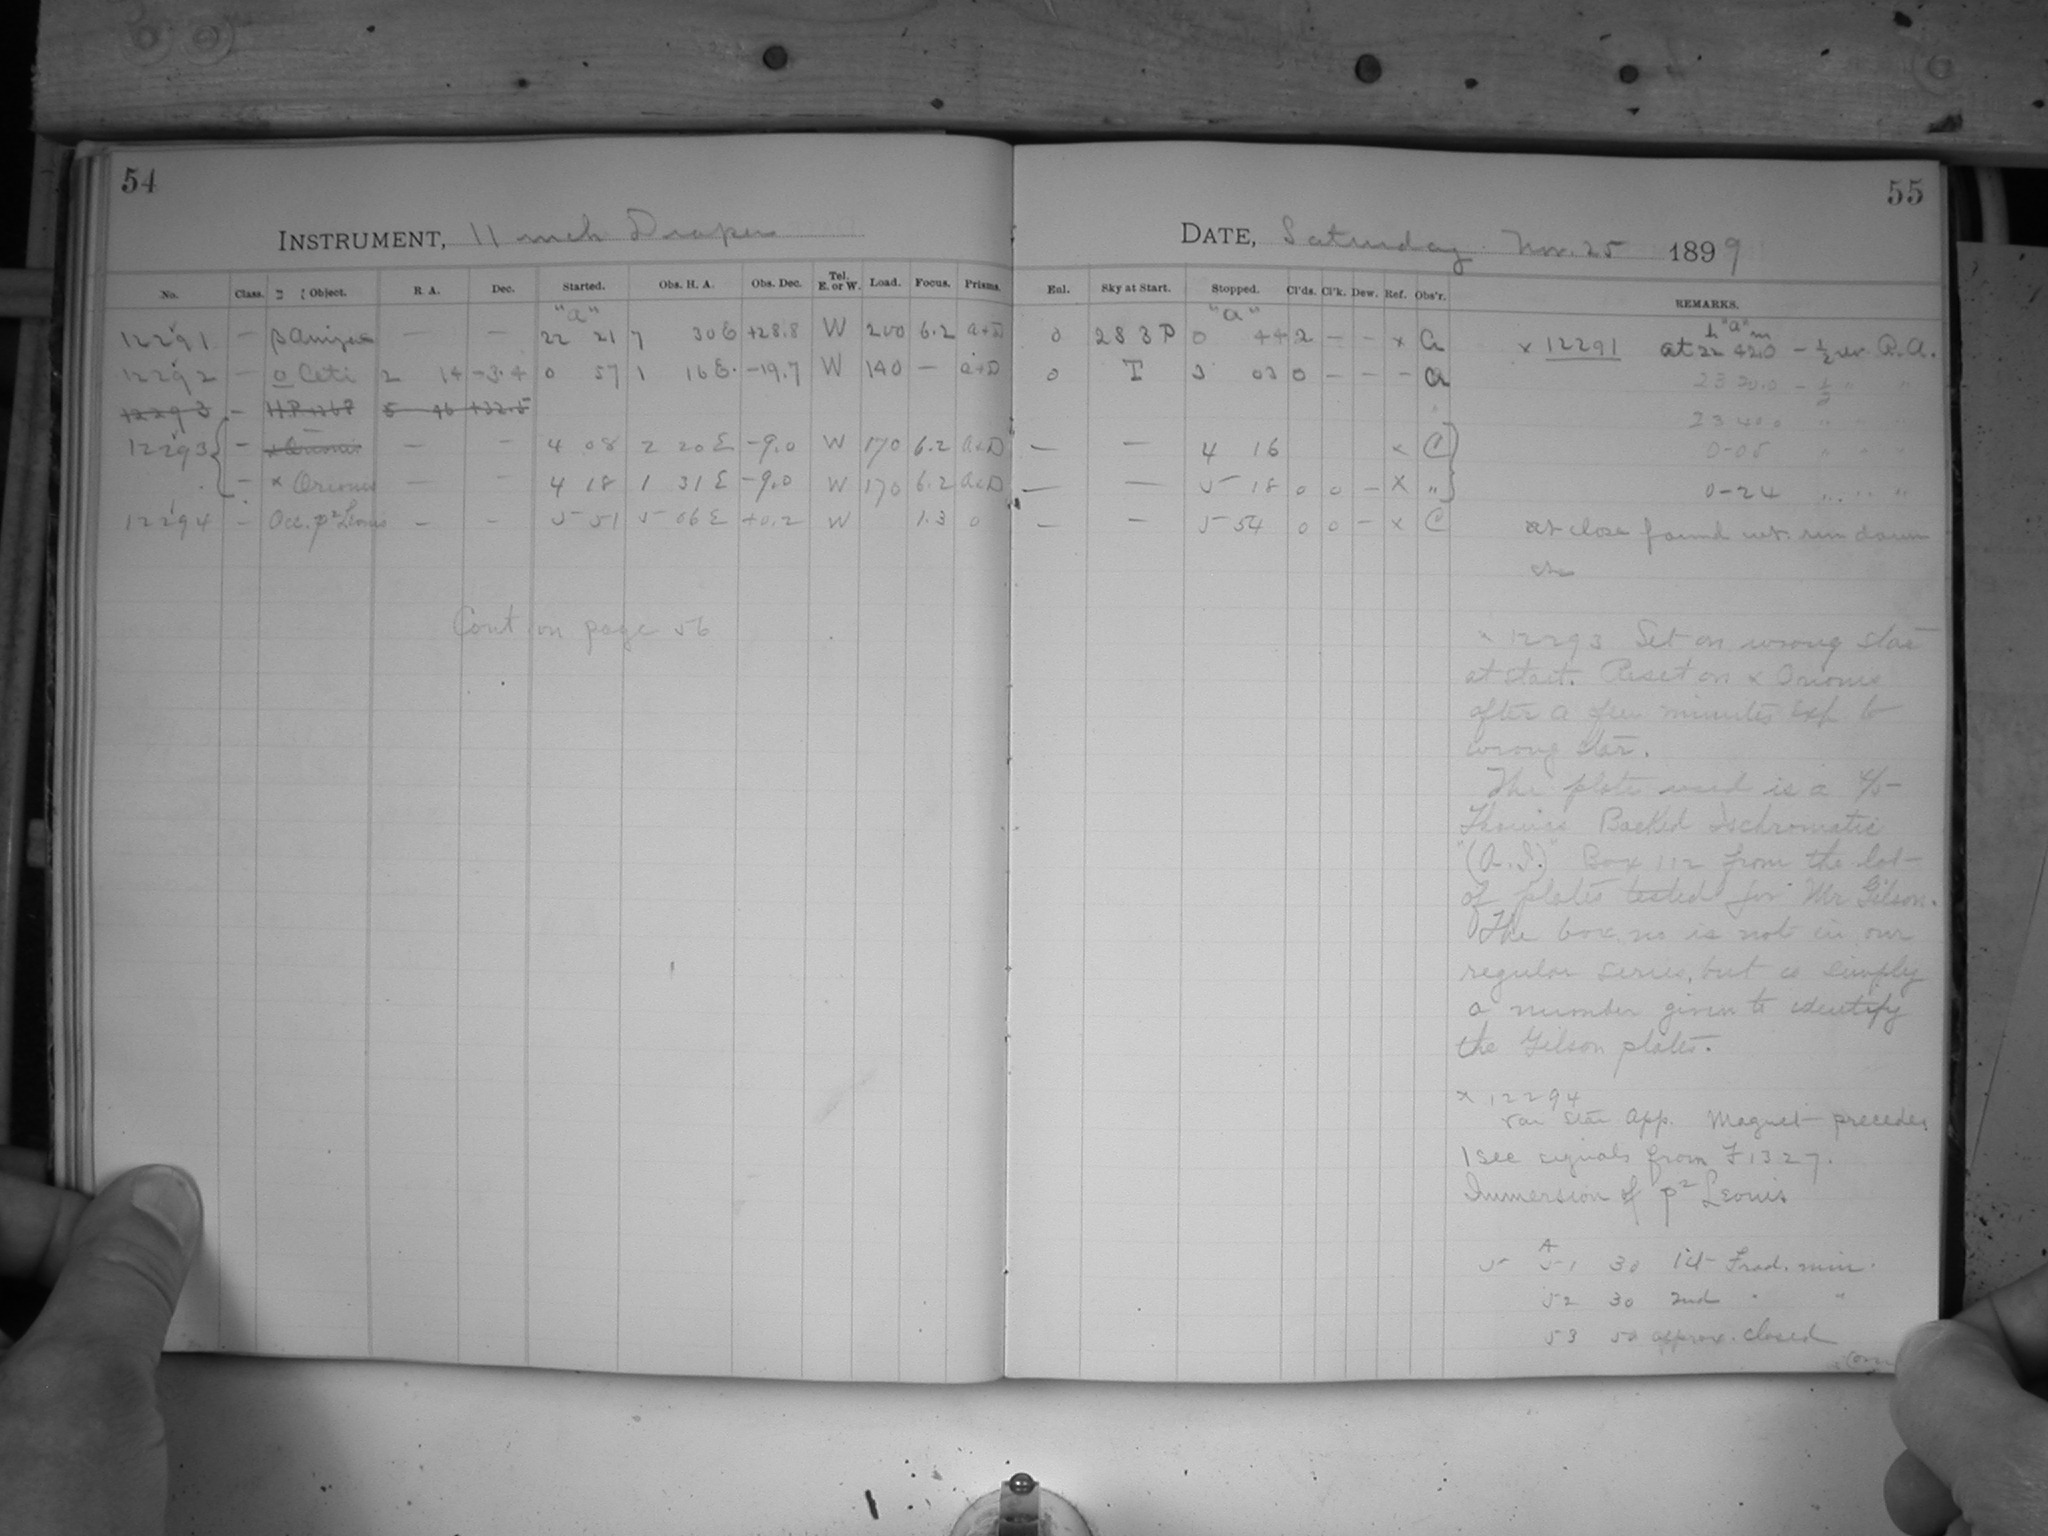 54
55
INSTRUMENT, 11 inch Draper
DATE, Saturday Nov. 25 1899
No. Class. Object. R A. Dec. Started. Obs. H. A. Obs. Dec. Tel. E. or W. Load. Focus. Prisms.
Eal. Sky at Start. Stopped. Cl'ds. Cl'k. Dew. Ref. Obs'r. REMARKS.
"a" "a"
12291 — β Aurigae — — 22 21 7 30 E +28.8 W 200 6.2 a+D 0 283P 0 44 2 — — x a
12292 — o Ceti 2 14 -3.4 0 57 1 16 E. -19.7 W 140 — a+D 0 I 3 03 0 — — — a
12293 — 5 46 +32.5
12293 — — — 4 08 2 20 E -9.0 W 170 6.2 A+D — — 4 16 x C
— α Orionis — — 4 18 1 31 E -9.0 W 170 6.2 A+D — — 5 18 0 0 — x "
12294 — Occ. p² Leonis — — 5 51 5 06 E +0.2 W 1.3 0 — — 5 54 0 0 — x C
Cont on page 56
h "a" m
x 12291 at 22 42.0 - ½ R.A.
23 20.0 - ½ " "
23 40.0 " " "
0-05 " " "
0-24 " " "
at close found wt. run down
x 12293 Set on wrong star
at start. Reset on α Orionis
after a few minutes exp to
wrong star.
The plate used is a 4/5
Backed Isochromatic
"(A.I.)" Box 112 from the lot
of plates tested for Mr Gilson.
The box no is not in our
regular series, but is simply
a number given to identify
the Gilson plates.
x 12294
Var Star App. Magnet precedes
1 sec signals from F1327.
Immersion of p² Leonis
A
5 51 30 1st Frod. min.
52 30 2nd " "
53 50 approx. closed